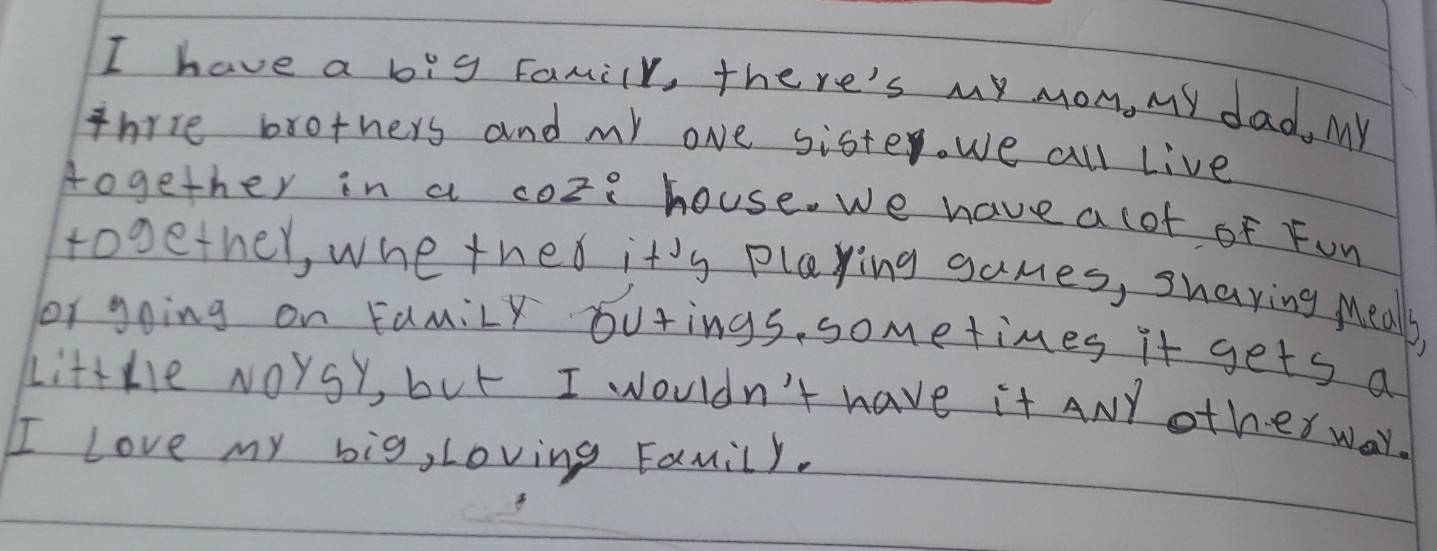 I have a big Family, there's my mom, my dad, my
thrie brothers and my one sister. we all Live
together in a cozi house. we have a lot of Fun
together, whether it's playing games, sharing meals,
or going on Family outings. sometimes it gets a
Little Noysy, but I wouldn't have it ANY other way.
I Love my big, Loving Family.